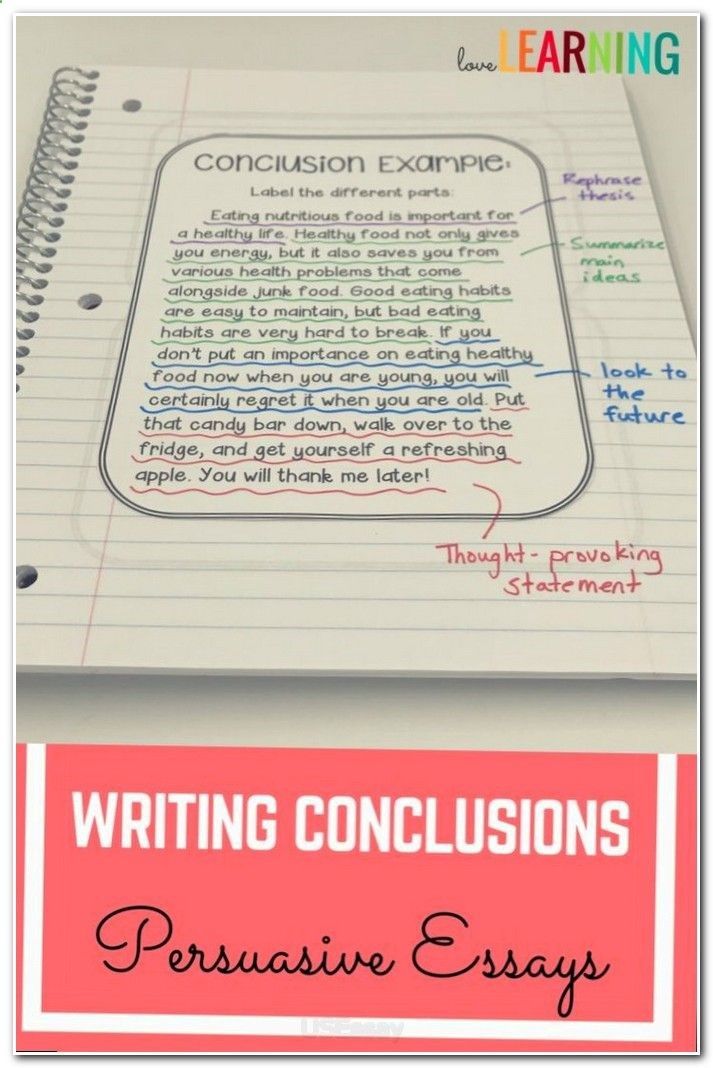 love LEARNING
Conclusion Example:
Label the different parts:
Eating nutritious food is important for
a healthy life. Healthy food not only gives
you energy, but it also saves you from
various health problems that come
alongside junk food. Good eating habits
are easy to maintain, but bad eating
habits are very hard to break. If you
don't put an importance on eating healthy
food now when you are young, you will
certainly regret it when you are old. Put
that candy bar down, walk over to the
fridge, and get yourself a refreshing
apple. You will thank me later!
Rephrase
thesis
Summarize
main
ideas
look to
the
future
Thought-provoking
statement
WRITING CONCLUSIONS
Persuasive Essays
USEssay